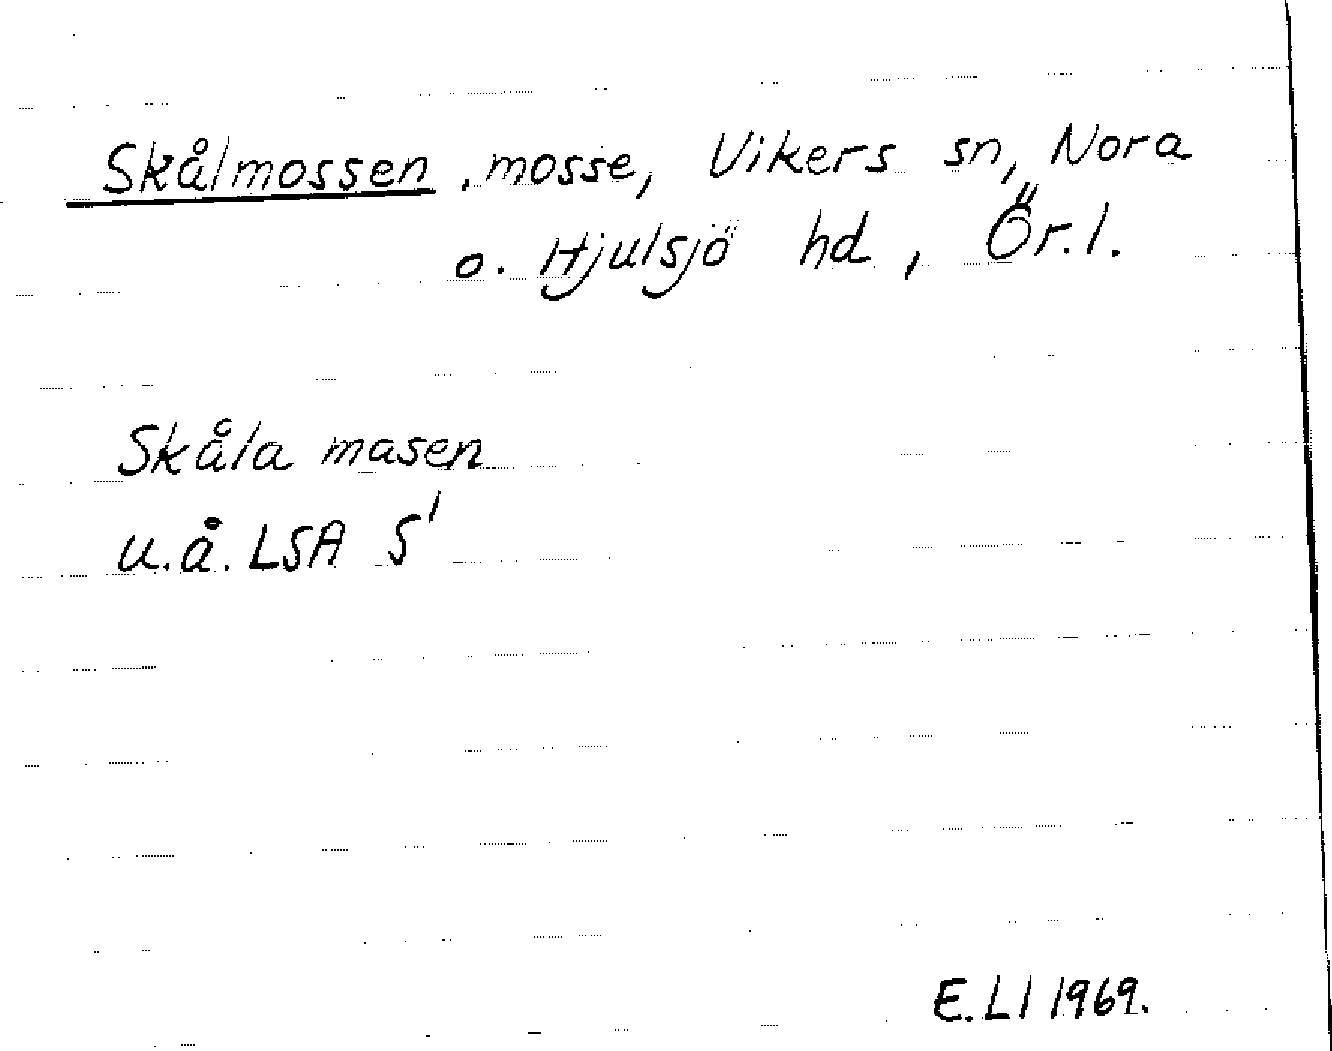 Skålmossen, mosse, Vikers sn, Nora
o. Hjulsjö hd, Ör.l.
Skåla masen
u.å. LSA S'
E.Ll 1969.